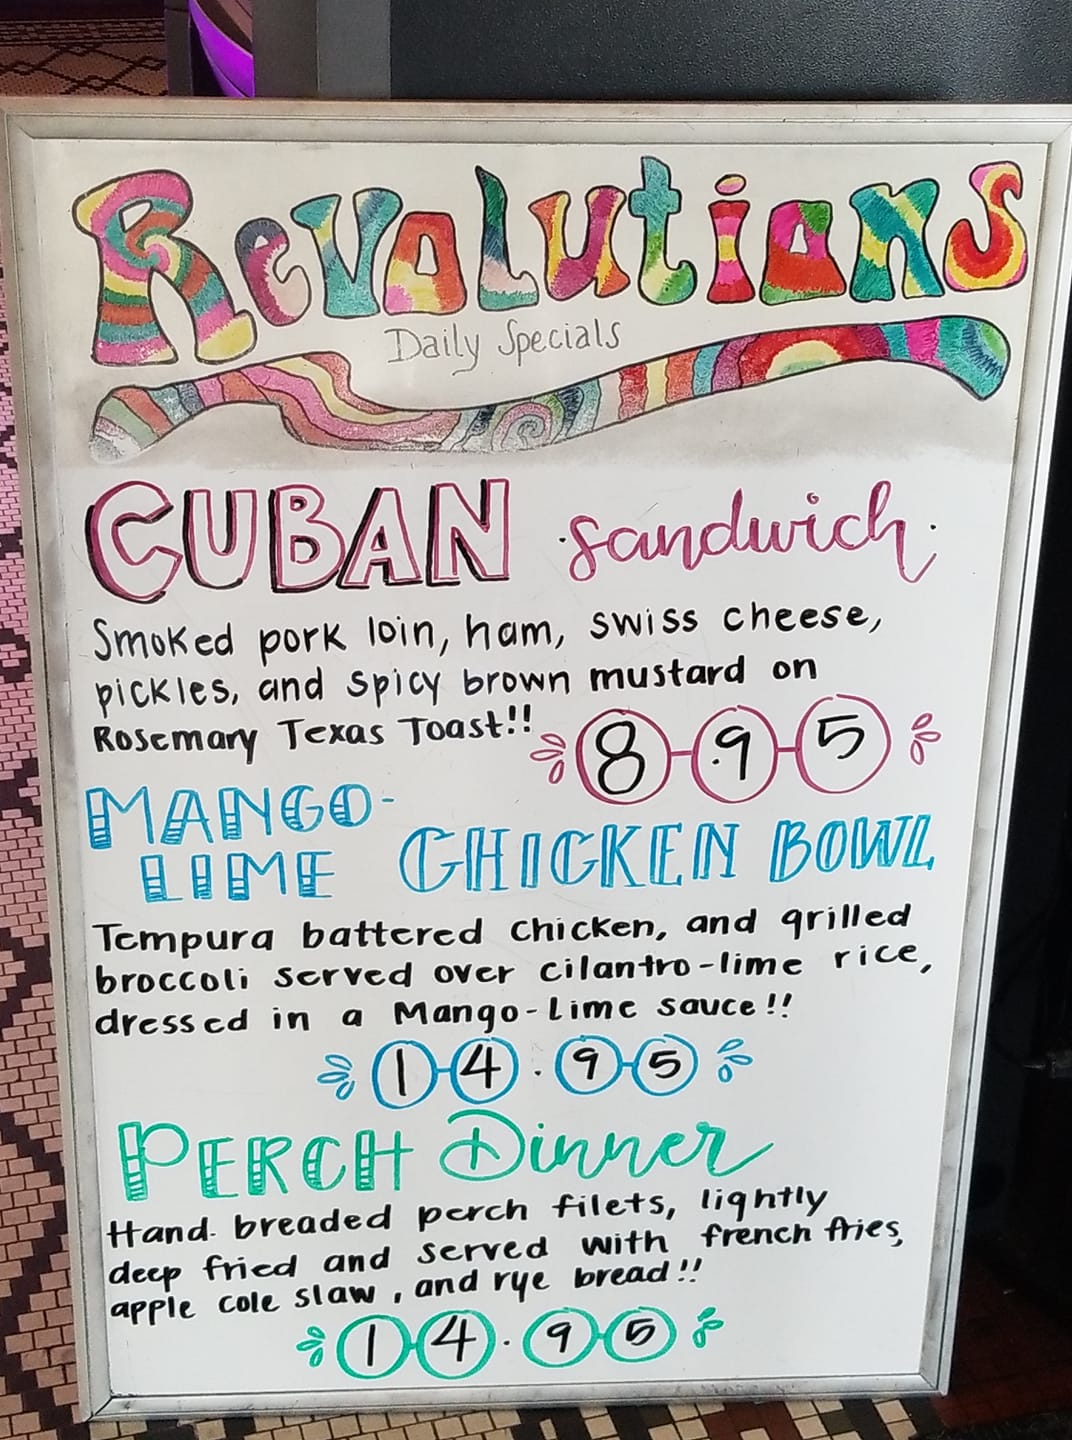 Revolutions
Daily Specials
CUBAN sandwich
Smoked pork loin, ham, swiss cheese,
pickles, and spicy brown mustard on
Rosemary Texas Toast!!
8.95
MANGO-
LIME CHICKEN BOWL
Tempura battered chicken, and grilled
broccoli served over cilantro-lime rice,
dressed in a Mango-Lime sauce!!
14.95
PERCH Dinner
Hand-breaded perch filets, lightly
deep fried and served with french fries,
apple cole slaw, and rye bread!!
14.95